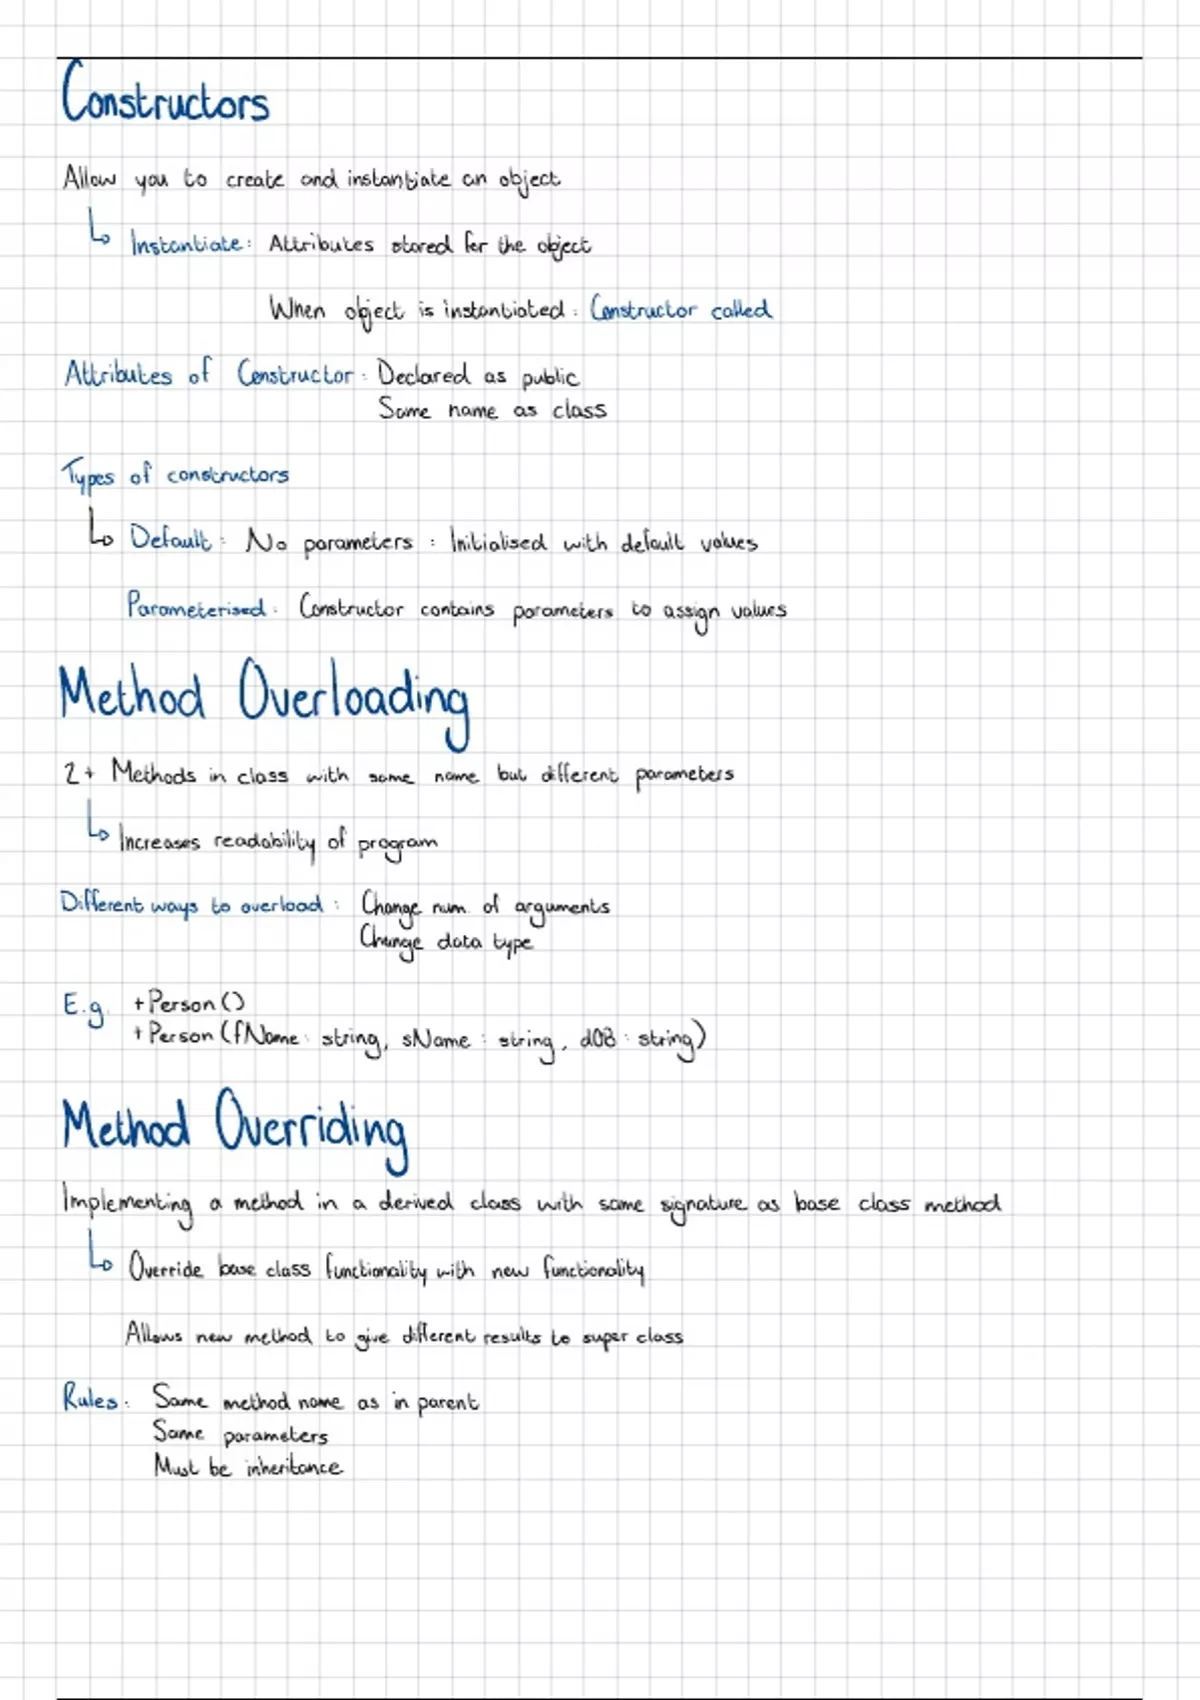 Constructors
Allow you to create and instantiate an object
Instantiate: Attributes stored for the object
When object is instantiated: Constructor called
Attributes of Constructor: Declared as public
Same name as class
Types of constructors
Default: No parameters: Initialised with default values
Parameterised: Constructor contains parameters to assign values
Method Overloading
2+ Methods in class with same name but different parameters
Increases readability of program
Different ways to overload: Change num. of arguments
Change data type
E.g. +Person()
+Person(fName: string, sName: string, dOB: string)
Method Overriding
Implementing a method in a derived class with same signature as base class method
Override base class functionality with new functionality
Allows new method to give different results to super class
Rules: Same method name as in parent
Same parameters
Must be inheritance